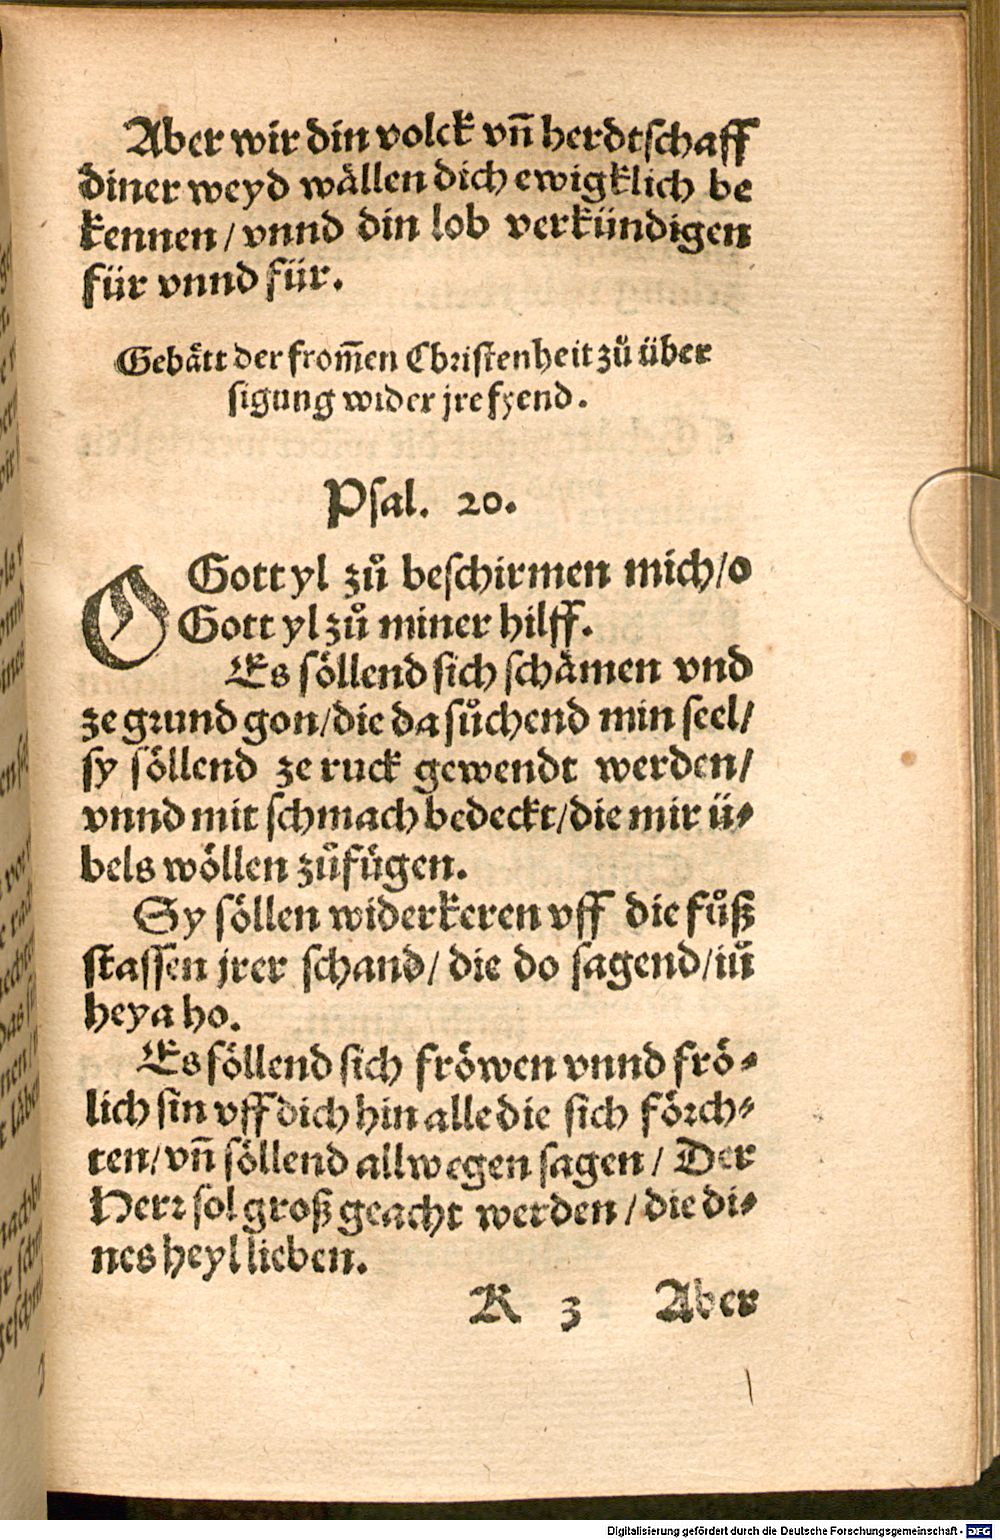 Aber wir din volck vn̄ herdtschaff
diner weyd wällen dich ewigklich be
kennen / vnnd din lob verkündigen
für vnnd für.
Gebätt der from̄en Christenheit zů über
sigung wider jre fyend.
Psal. 20.
O Gott yl zů beschirmen mich/o
Gott yl zů miner hilff.
Es söllend sich schämen vnd
ze grund gon/die da sůchend min seel/
sy söllend ze ruck gewendt werden/
vnnd mit schmach bedeckt/die mir ü⸗
bels wöllen zůfügen.
Sy söllen widerkeren vff die fůß
stassen jrer schand/ die do sagend/iů
heya ho.
Es söllend sich fröwen vnnd frö⸗
lich sin vff dich hin alle die sich förch⸗
ten/vn̄ söllend allwegen sagen / Der
Herr sol groß geacht werden / die di⸗
nes heyl lieben.
K 3 Aber
Digitalisierung gefördert durch die Deutsche Forschungsgemeinschaft - DFG